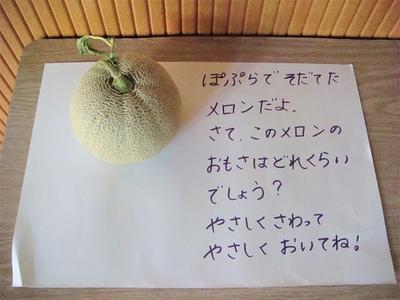 ぽぷらでそだてた
メロンだよ.
さて、このメロンの
おもさはどれくらい
でしょう?
やさしくさわって
やさしくおいてね!